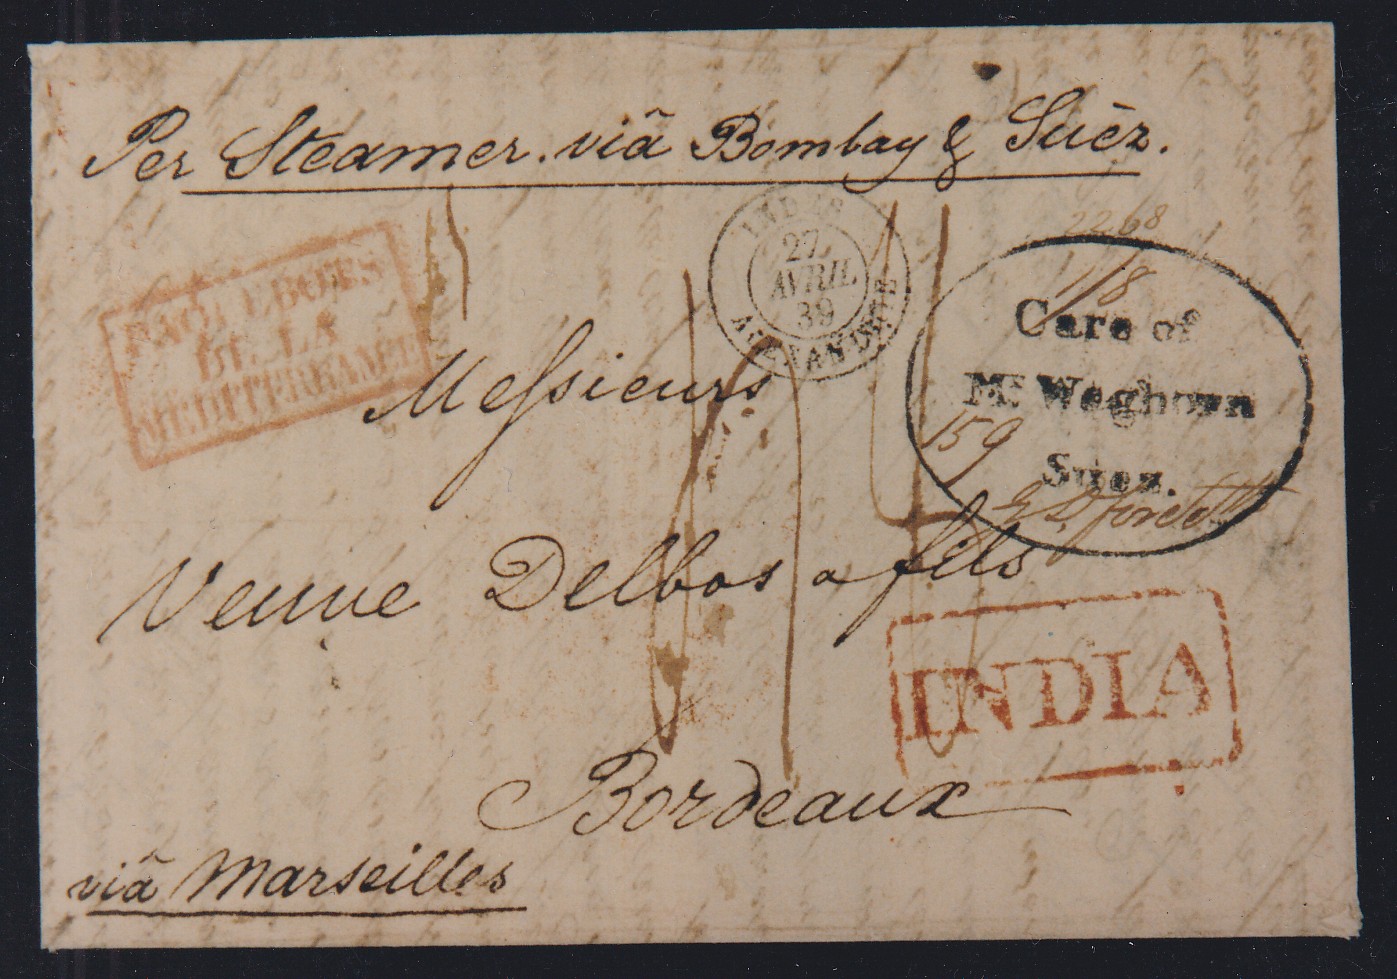 Per Steamer. viâ Bombay & Suēz.
INDES
27
AVRIL
39
ALEXANDRIE
PAQUEBOTS
DE LA
MEDITERRANEE
2268
1/8
Care of
Mr. Waghorn
Suez.
159
Messieurs
Veuve Delbos a fils
INDIA
Bordeaux
viâ Marseilles